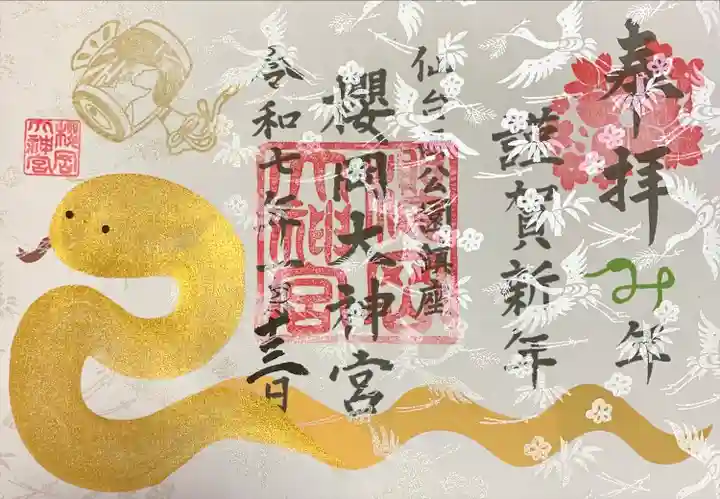 奉拝
み年
謹賀新年
仙台西公園鎮座
櫻岡大神宮
令和七年一月十三日
櫻岡大神宮
櫻岡大神宮